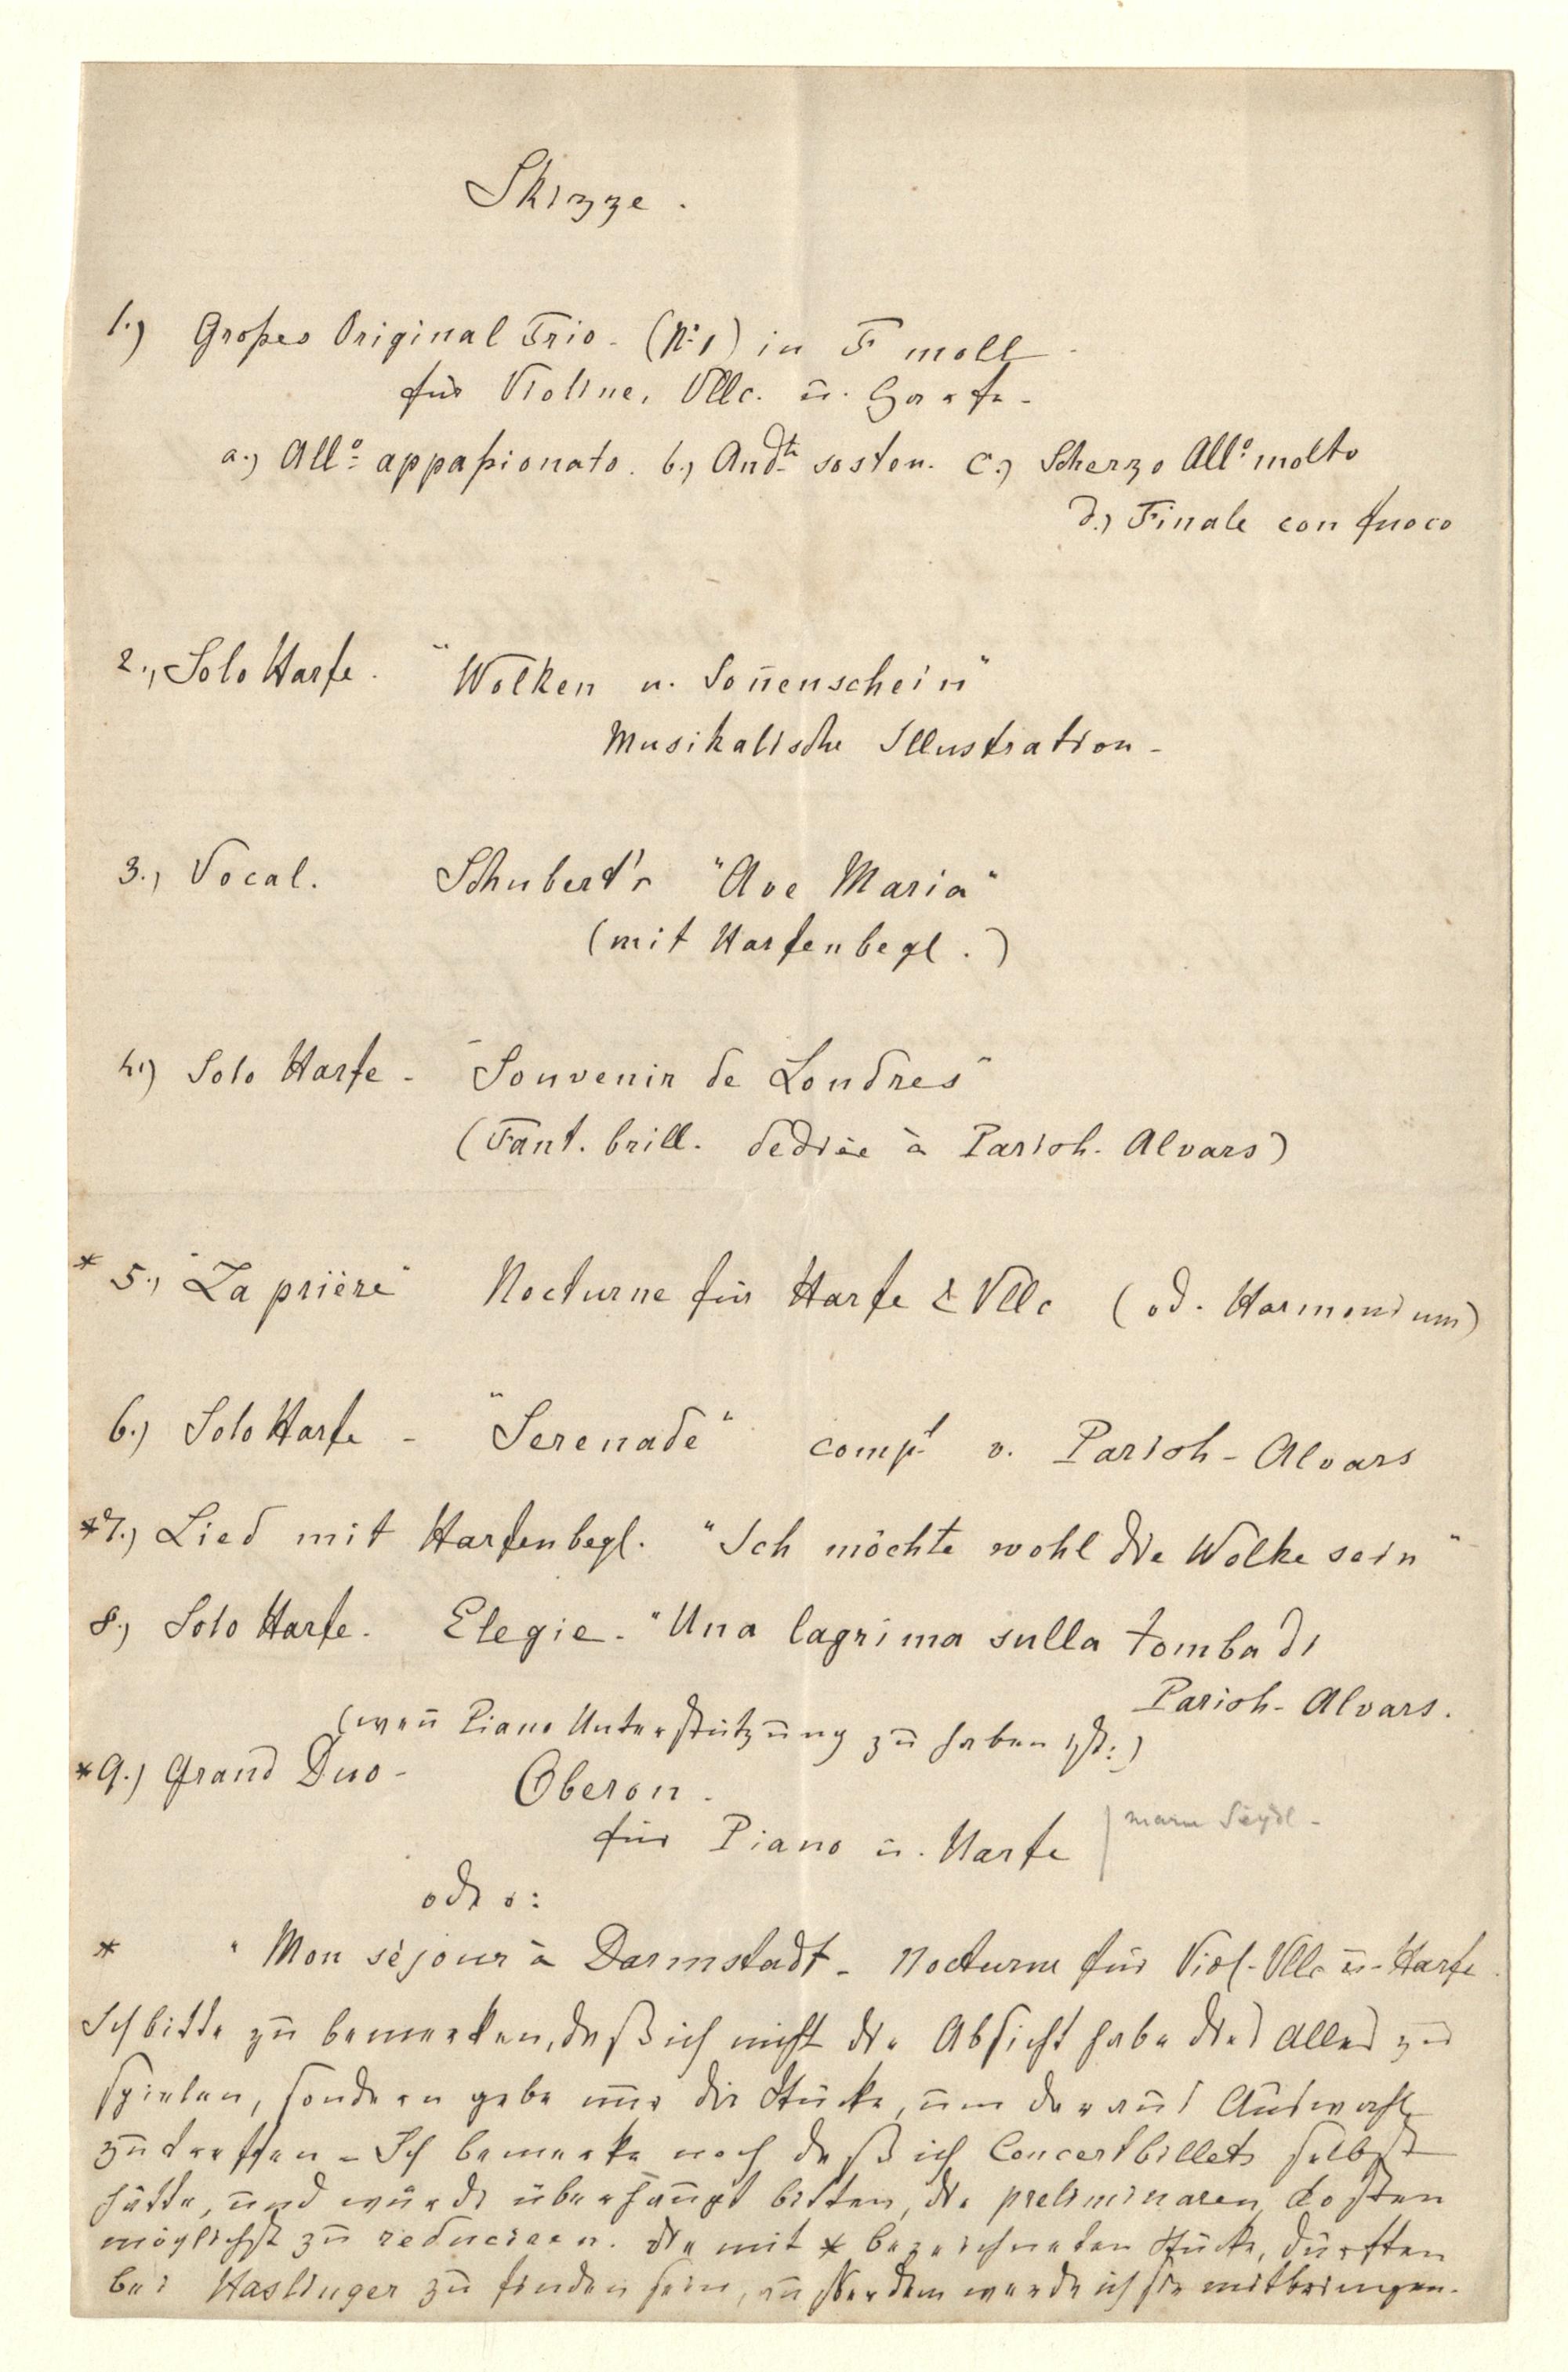 Skizze.
1.) Großes Original Trio - (No 1) in F moll -
für Violine, Vllc. ū. Harfe -
a.) Allo appaßionato. b.) Andte sosten. c.) Scherzo Allo molto
d.) Finale con fuoco
2.) Solo Harfe. "Wolken u. Soñenschein"
Musikalische Illustration -
3.) Vocal. Schubert's "Ave Maria"
(mit Harfenbegl.)
4.) Solo Harfe - "Souvenir de Londres"
(Fant. brill. dediée à Parish-Alvars)
* 5.) "La prière" Nocturne für Harfe & Vllc (od. Harmonium)
6.) Solo Harfe - "Serenade" compt v. Parish-Alvars
* 7.) Lied mit Harfenbegl. "Ich möchte wohl die Wolke sein"
8.) Solo Harfe. Elegie. "Una lagrima sulla tomba di
Parish-Alvars.
(weñ Piano Unterstützung zu haben ist:)
* 9.) Grand Duo - Oberon.
für Piano ū. Harfe
oder:
* "Mon séjour à Darmstadt - Nocturne für Viol-Vllc ū-Harfe.
Ich bitte zu bemerken, daß ich nicht die Absicht habe dies Alles zu
spielen, sondern gebe nur die Stücke, um daraus Auswahl
zu treffen - Ich bemerke noch daß ich Concertbillets selbst
hätte, und würde überhaupt bitten, die preliminaren Kosten
möglichst zu reduciren. Die mit * bezeichneten Stücke, dürften
bei Haslinger zu finden sein, außerdem werde ich sie mitbringen.